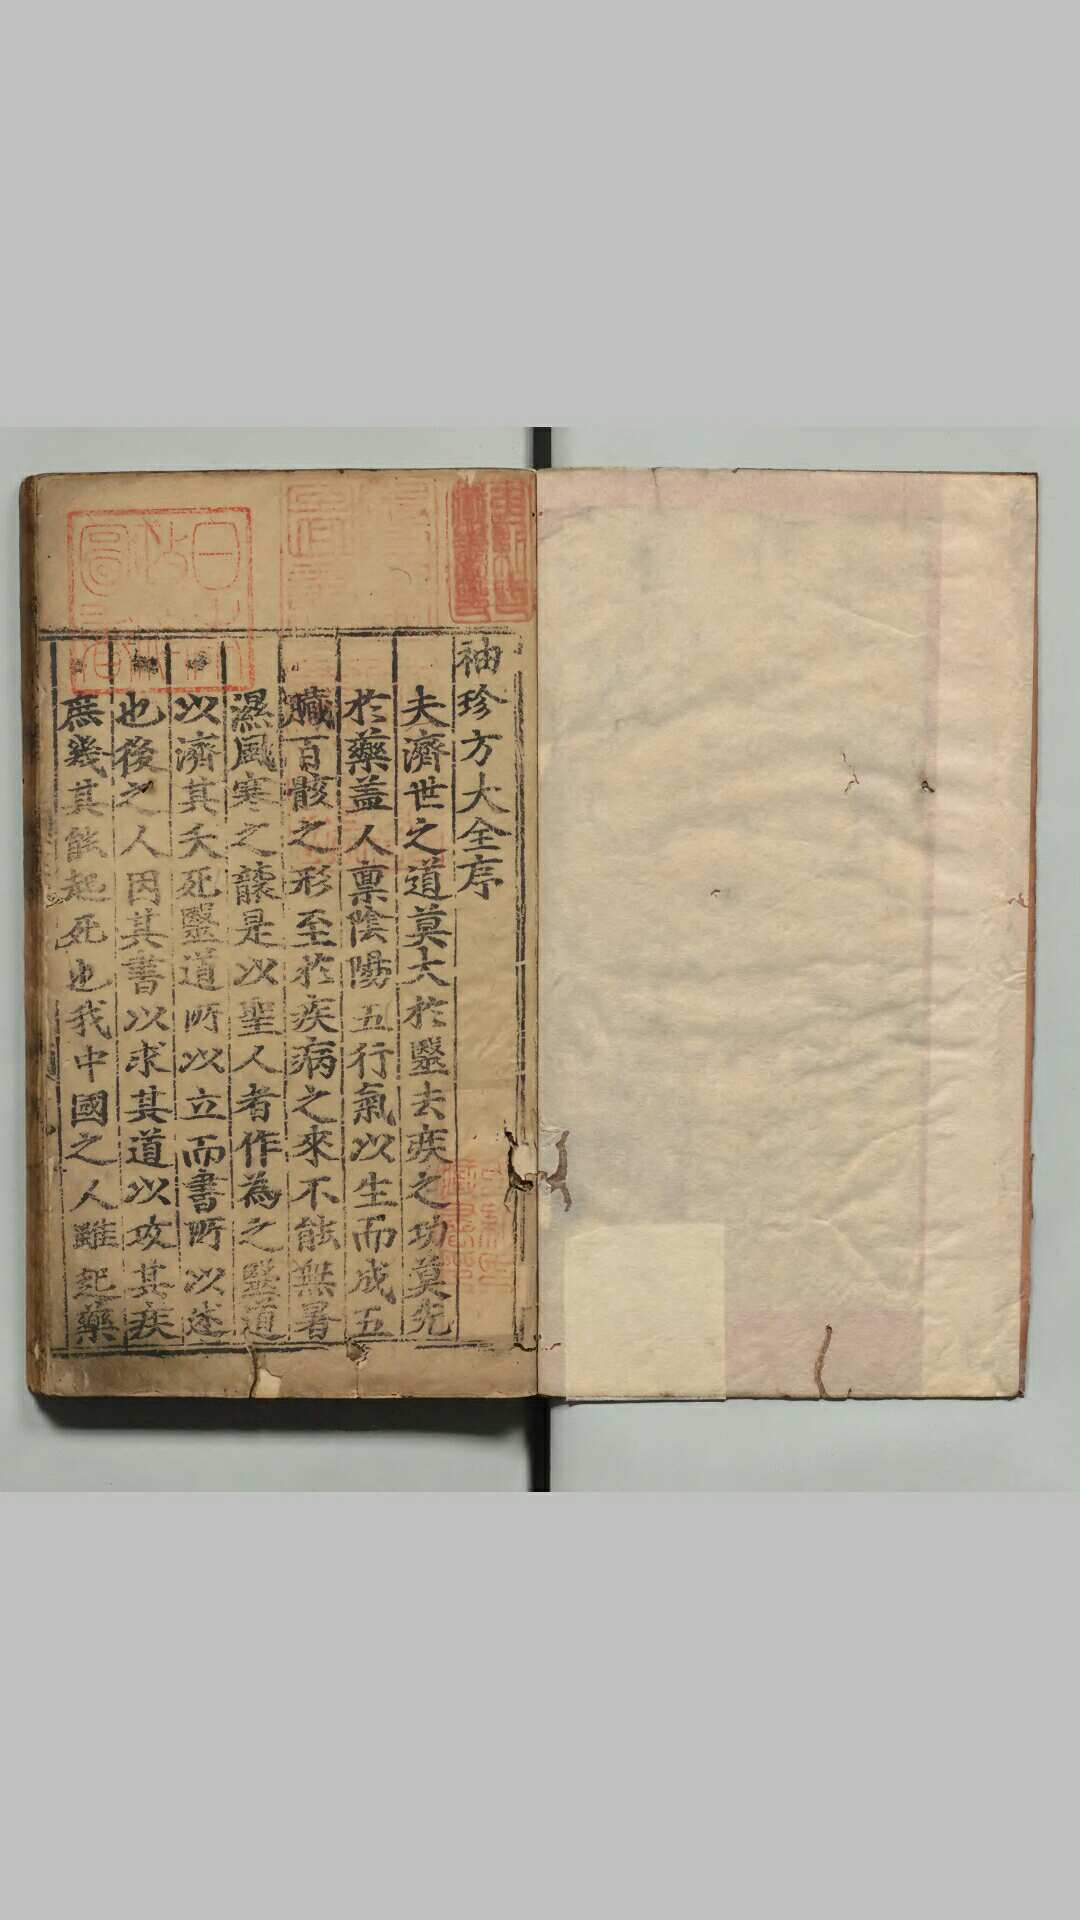 袖珍方大全序
夫濟世之道莫大於毉去疾之功莫先
於藥盖人禀陰陽五行氣以生而成五
臟百骸之形至於疾病之來不能無暑
濕風寒之是以聖人者作為之毉道
以濟其夭死毉道所以立而書所以述
也後之人因其書以求其道以攻其疾
庶幾其能起死也我中國之人雖氾藥